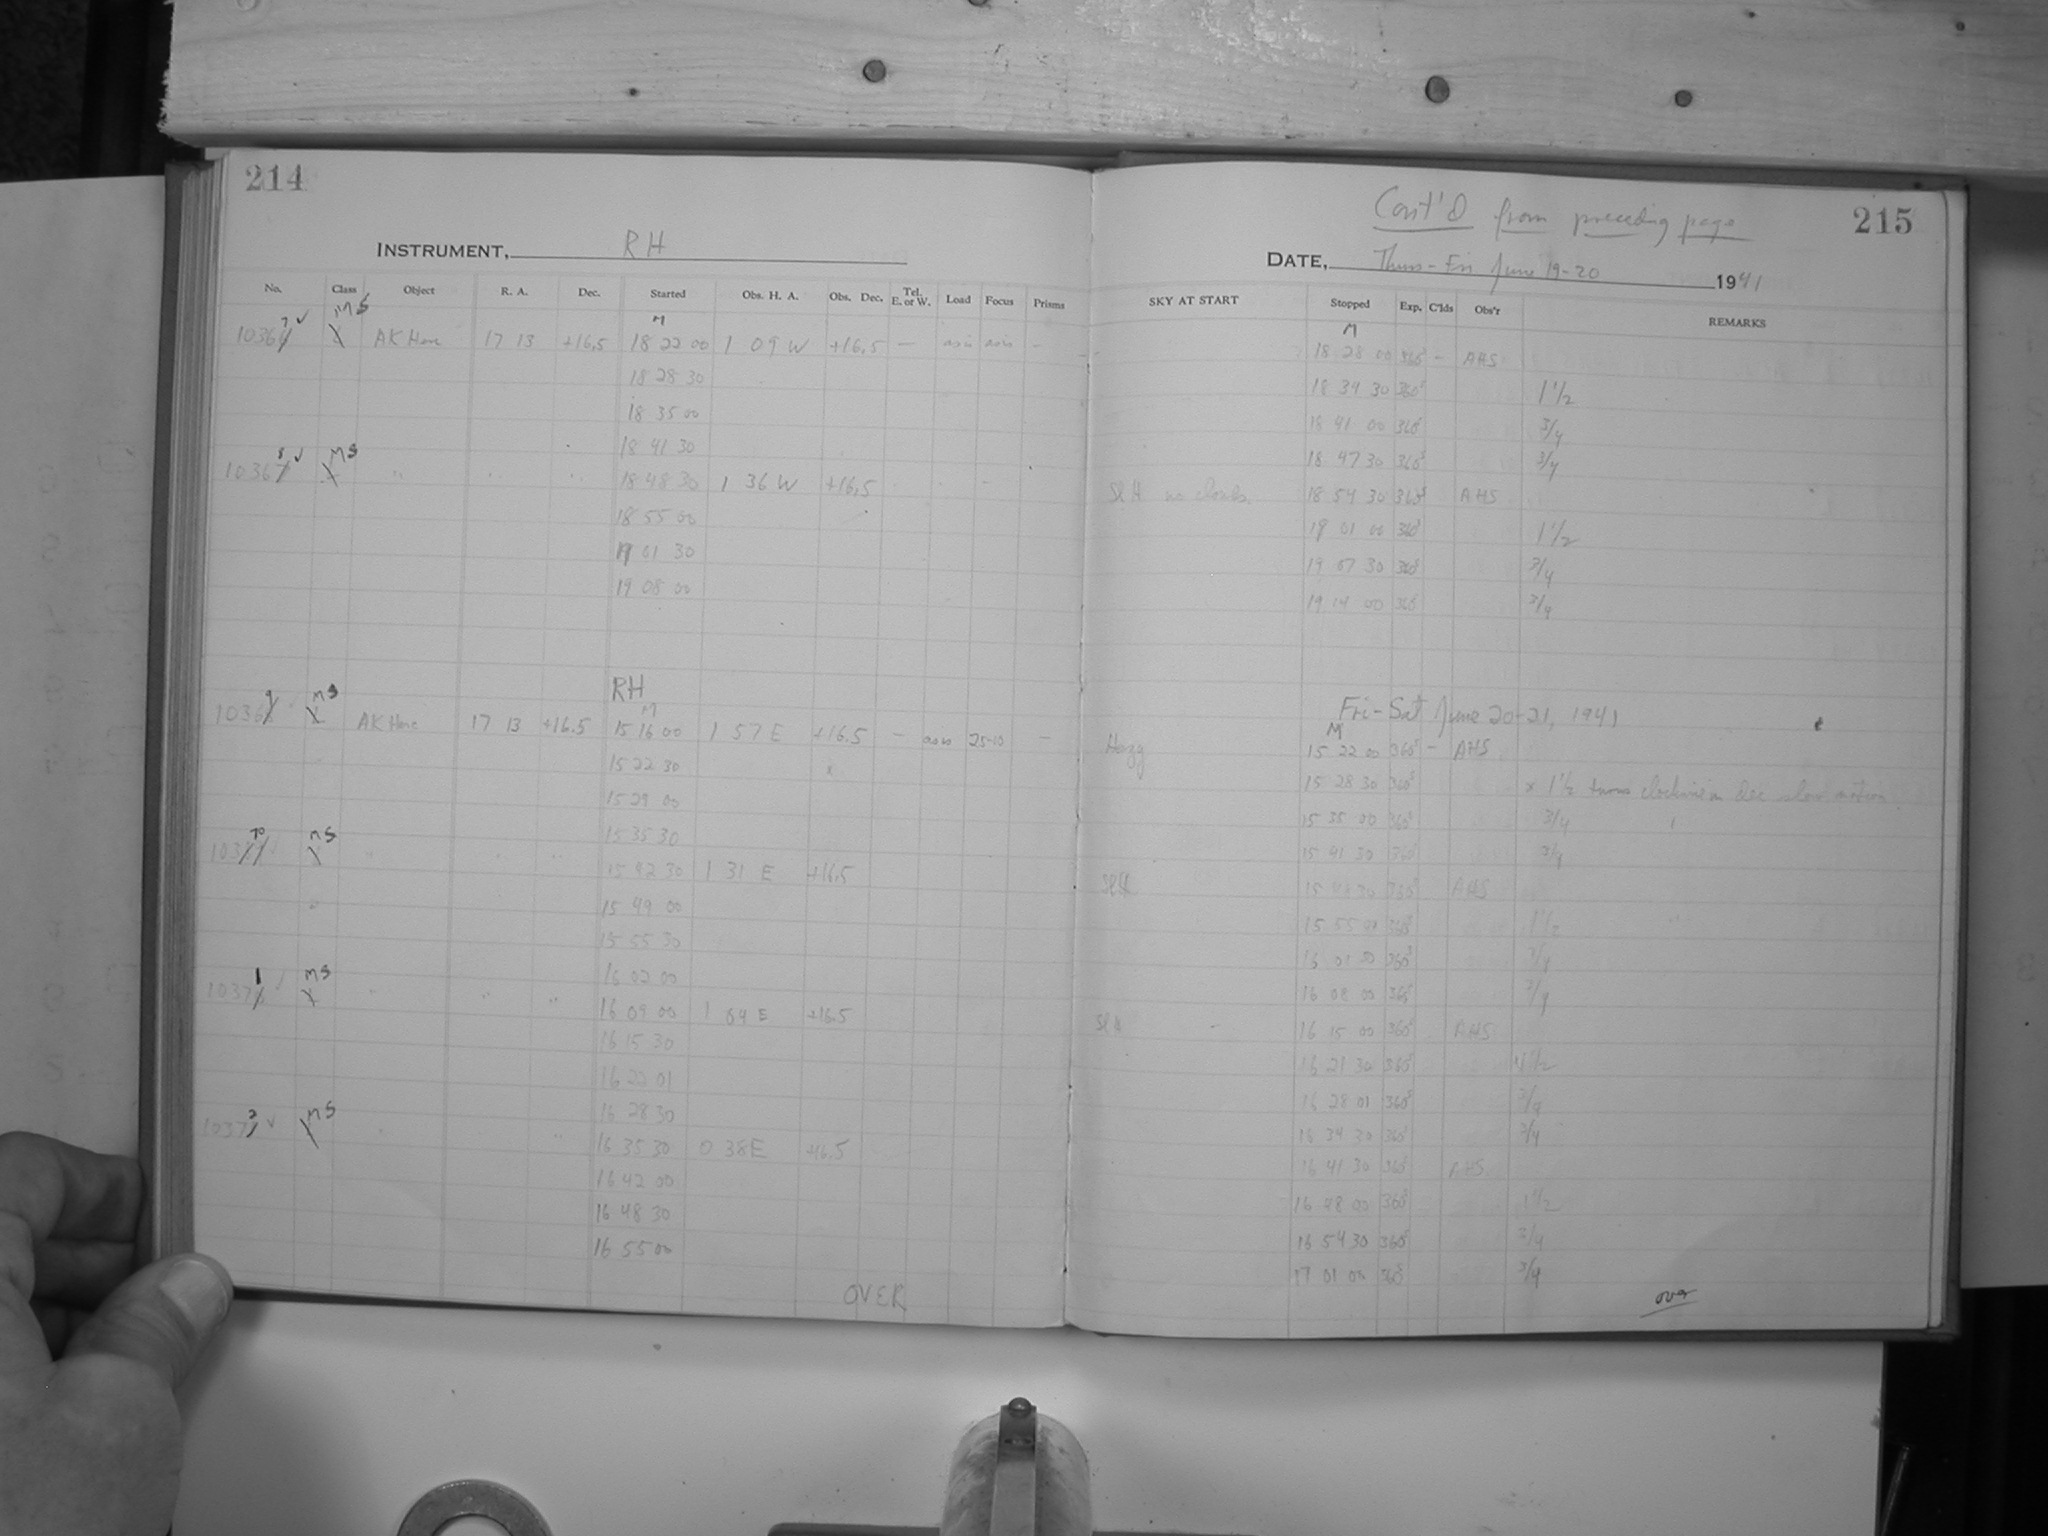 214
INSTRUMENT, RH
No. Class Object R. A. Dec. Started Obs. H. A. Obs. Dec. Tel. E. or W. Load Focus Prisms
M
10367 ✓ MS AK Herc 17 13 +16.5 18 22 00 1 09 W +16.5 — as is as is -
18 28 30
18 35 00
18 41 30
10368 ✓ MS " " " 18 48 30 1 36 W +16.5
18 55 00
19 01 30
19 08 00
RH
M
10369 MS AK Herc 17 13 +16.5 15 16 00 1 57 E +16.5 — as is 25-10 —
15 22 30 x
15 29 00
15 35 30
10370 MS " " " 15 42 30 1 31 E +16.5
15 49 00
15 55 30
16 02 00
10371 MS " " " 16 09 00 1 04 E +16.5
16 15 30
16 22 01
16 28 30
10372 ✓ MS " " 16 35 30 0 38 E +16.5
16 42 00
16 48 30
16 55 00
OVER
Cont'd from preceding page
215
DATE, Thurs-Fri June 19-20 1941
SKY AT START Stopped Exp. C'lds Obs'r REMARKS
M
18 28 00 360s - AHS
18 34 30 360s 1 1/2
18 41 00 360s 3/4
18 47 30 360s 3/4
Sl H no clouds. 18 54 30 360s AHS
19 01 00 360s 1 1/2
19 07 30 360s 3/4
19 14 00 360s 3/4
Fri-Sat June 20-21, 1941
M
Hazy 15 22 00 360s - AHS
15 28 30 360s x 1 1/2 turns clockwise in Dec slow motion.
15 35 00 360s 3/4 "
15 41 30 360s 3/4
Sl H 15 48 30 360s AHS
15 55 00 360s 1 1/2
16 01 30 360s 3/4
16 08 00 360s 3/4
Sl H 16 15 00 360s AHS
16 21 30 360s 1 1/2
16 28 01 360s 3/4
16 34 30 360s 3/4
16 41 30 360s AHS
16 48 00 360s 1 1/2
16 54 30 360s 3/4
17 01 00 360s 3/4
over